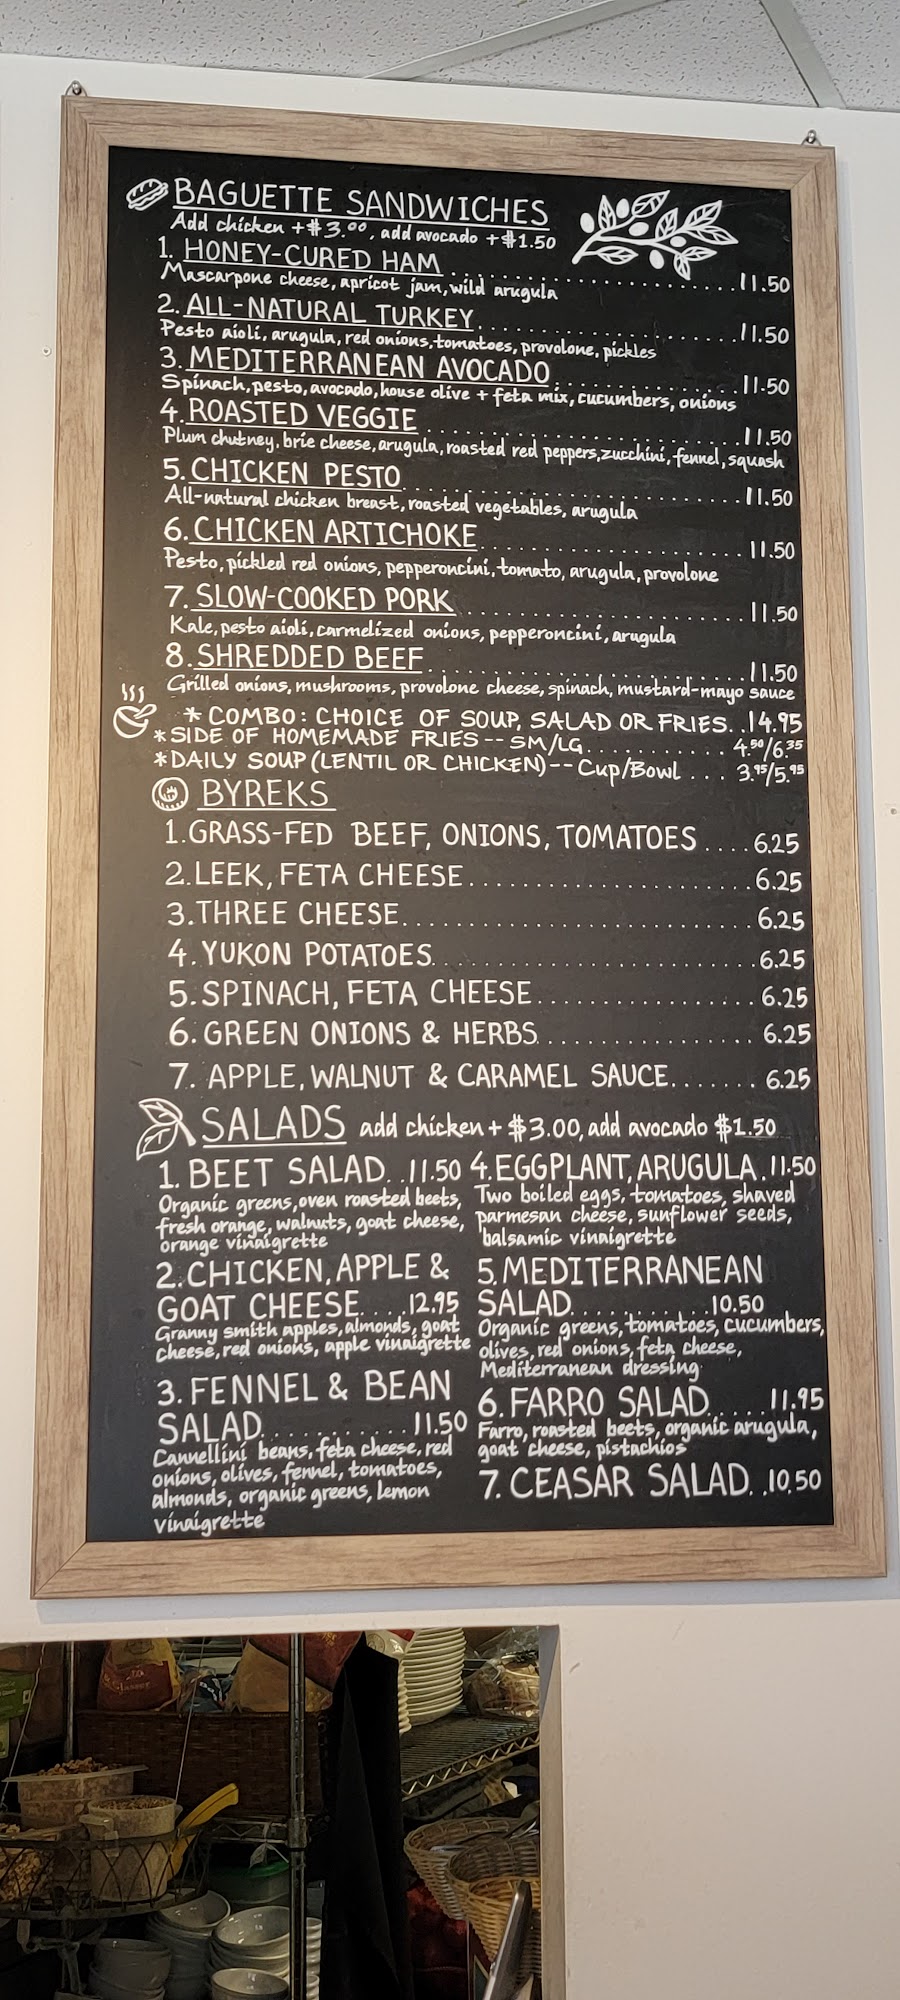 BAGUETTE SANDWICHES
Add chicken +$3.00, add avocado +$1.50
1. HONEY-CURED HAM..................11.50
Mascarpone cheese, apricot jam, wild arugula
2. ALL-NATURAL TURKEY..................11.50
Pesto aioli, arugula, red onions, tomatoes, provolone, pickles
3. MEDITERRANEAN AVOCADO..................11.50
Spinach, pesto, avocado, house olive + feta mix, cucumbers, onions
4. ROASTED VEGGIE..................11.50
Plum chutney, brie cheese, arugula, roasted red peppers, zucchini, fennel, squash
5. CHICKEN PESTO..................11.50
All-natural chicken breast, roasted vegetables, arugula
6. CHICKEN ARTICHOKE..................11.50
Pesto, pickled red onions, pepperoncini, tomato, arugula, provolone
7. SLOW-COOKED PORK..................11.50
Kale, pesto aioli, carmelized onions, pepperoncini, arugula
8. SHREDDED BEEF..................11.50
Grilled onions, mushrooms, provolone cheese, spinach, mustard-mayo sauce
* COMBO: CHOICE OF SOUP, SALAD OR FRIES..14.95
* SIDE OF HOMEMADE FRIES -- SM/LG...........4.50/6.35
* DAILY SOUP (LENTIL OR CHICKEN) -- Cup/Bowl...3.95/5.95
BYREKS
1. GRASS-FED BEEF, ONIONS, TOMATOES....6.25
2. LEEK, FETA CHEESE......................6.25
3. THREE CHEESE..........................6.25
4. YUKON POTATOES........................6.25
5. SPINACH, FETA CHEESE.................6.25
6. GREEN ONIONS & HERBS.................6.25
7. APPLE, WALNUT & CARAMEL SAUCE.......6.25
SALADS add chicken + $3.00, add avocado $1.50
1. BEET SALAD..11.50
Organic greens, oven roasted beets,
fresh orange, walnuts, goat cheese,
orange vinaigrette
2. CHICKEN, APPLE &
GOAT CHEESE....12.95
Granny smith apples, almonds, goat
cheese, red onions, apple vinaigrette
3. FENNEL & BEAN
SALAD............11.50
Cannellini beans, feta cheese, red
onions, olives, fennel, tomatoes,
almonds, organic greens, lemon
vinaigrette
4. EGGPLANT, ARUGULA.11.50
Two boiled eggs, tomatoes, shaved
parmesan cheese, sunflower seeds,
balsamic vinaigrette
5. MEDITERRANEAN
SALAD...........10.50
Organic greens, tomatoes, cucumbers,
olives, red onions, feta cheese,
Mediterranean dressing
6. FARRO SALAD.....11.95
Farro, roasted beets, organic arugula,
goat cheese, pistachios
7. CEASAR SALAD..10.50